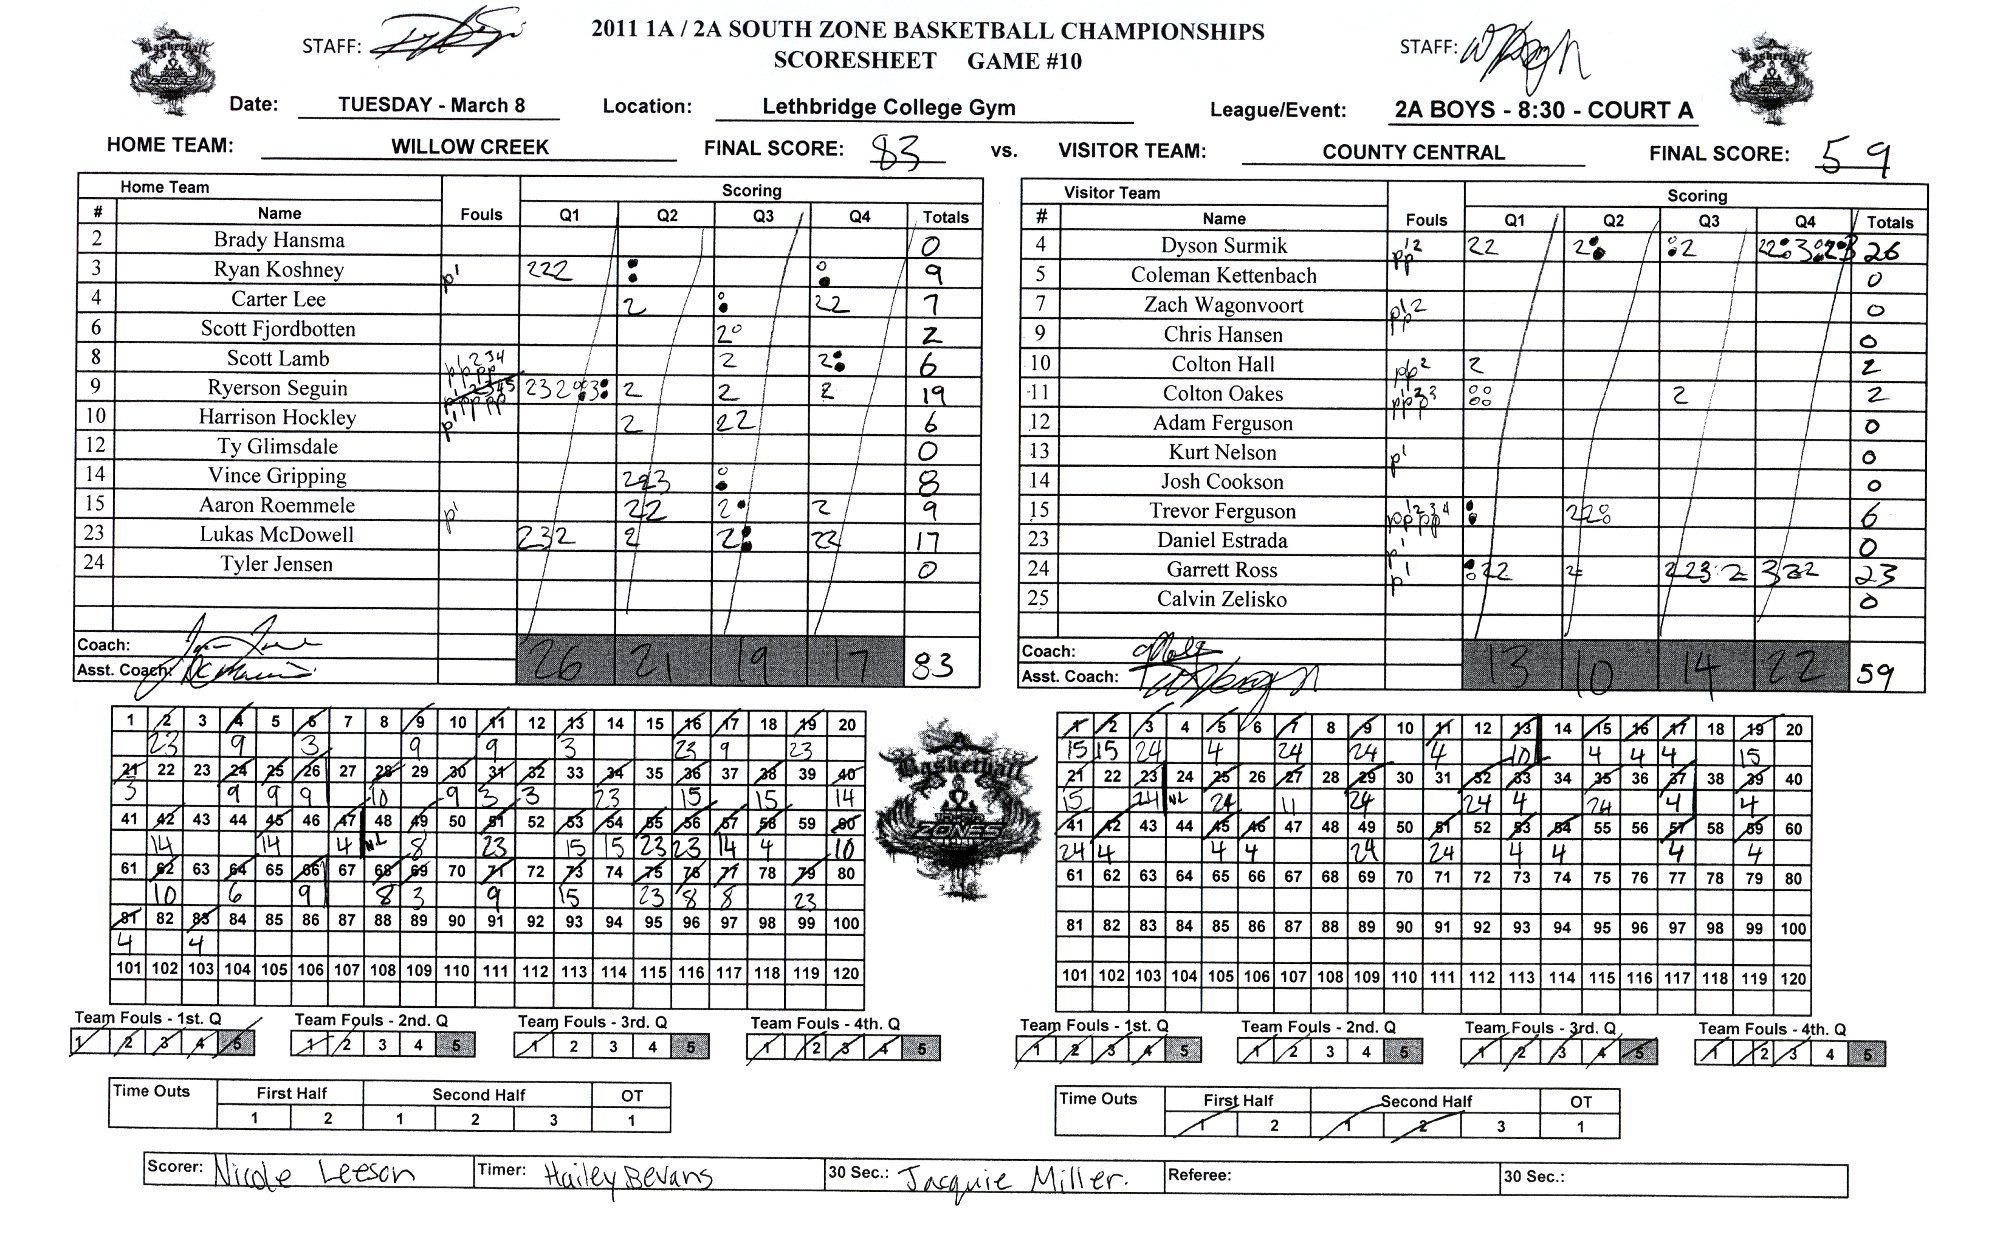 2011 1A / 2A SOUTH ZONE BASKETBALL CHAMPIONSHIPS
STAFF: STAFF:
SCORESHEET GAME #10
Date: TUESDAY - March 8 Location: Lethbridge College Gym League/Event: 2A BOYS - 8:30 - COURT A
HOME TEAM: WILLOW CREEK FINAL SCORE: 83 vs. VISITOR TEAM: COUNTY CENTRAL FINAL SCORE: 59
Home Team Scoring
# Name Fouls Q1 Q2 Q3 Q4 Totals
2 Brady Hansma 0
3 Ryan Koshney p1 222 9
4 Carter Lee 2 22 7
6 Scott Fjordbotten 2 2
8 Scott Lamb pppp 1234 2 2 6
9 Ryerson Seguin ppppp 12345 232 3 2 2 2 19
10 Harrison Hockley p1 2 22 6
12 Ty Glimsdale 0
14 Vince Gripping 223 8
15 Aaron Roemmele p1 22 2 2 9
23 Lukas McDowell 232 2 2 22 17
24 Tyler Jensen 0
Coach:
Asst. Coach:
26 21 19 17 83
Visitor Team Scoring
# Name Fouls Q1 Q2 Q3 Q4 Totals
4 Dyson Surmik pp 12 22 2 2 26
5 Coleman Kettenbach 0
7 Zach Wagonvoort pp 12 0
9 Chris Hansen 0
10 Colton Hall pp 2 2 2
11 Colton Oakes ppp 2 2
12 Adam Ferguson 0
13 Kurt Nelson p1 0
14 Josh Cookson 0
15 Trevor Ferguson pppp 1234 22 6
23 Daniel Estrada p1 0
24 Garrett Ross p1 22 2 2232 322 23
25 Calvin Zelisko 0
Coach:
Asst. Coach:
13 10 14 22 59
1 2 3 4 5 6 7 8 9 10 11 12 13 14 15 16 17 18 19 20
23 9 3 9 9 3 23 9 23
21 22 23 24 25 26 27 28 29 30 31 32 33 34 35 36 37 38 39 40
3 9 9 9 10 9 3 3 23 15 15 14
41 42 43 44 45 46 47 48 49 50 51 52 53 54 55 56 57 58 59 60
14 14 4 NL 8 23 15 15 23 23 14 4 10
61 62 63 64 65 66 67 68 69 70 71 72 73 74 75 76 77 78 79 80
10 6 9 8 3 9 15 23 8 8 23
81 82 83 84 85 86 87 88 89 90 91 92 93 94 95 96 97 98 99 100
4 4
101 102 103 104 105 106 107 108 109 110 111 112 113 114 115 116 117 118 119 120
Basketball
ZONES
1 2 3 4 5 6 7 8 9 10 11 12 13 14 15 16 17 18 19 20
15 15 24 4 24 24 4 10 4 4 4 15
21 22 23 24 25 26 27 28 29 30 31 32 33 34 35 36 37 38 39 40
15 24 NL 24 11 24 24 4 24 4 4
41 42 43 44 45 46 47 48 49 50 51 52 53 54 55 56 57 58 59 60
24 4 4 4 24 24 4 4 4 4
61 62 63 64 65 66 67 68 69 70 71 72 73 74 75 76 77 78 79 80
81 82 83 84 85 86 87 88 89 90 91 92 93 94 95 96 97 98 99 100
101 102 103 104 105 106 107 108 109 110 111 112 113 114 115 116 117 118 119 120
Team Fouls - 1st. Q Team Fouls - 2nd. Q Team Fouls - 3rd. Q Team Fouls - 4th. Q
1 2 3 4 5 1 2 3 4 5 1 2 3 4 5 1 2 3 4 5
Team Fouls - 1st. Q Team Fouls - 2nd. Q Team Fouls - 3rd. Q Team Fouls - 4th. Q
1 2 3 4 5 1 2 3 4 5 1 2 3 4 5 1 2 3 4 5
Time Outs First Half Second Half OT
1 2 1 2 3 1
Time Outs First Half Second Half OT
1 2 1 2 3 1
Scorer: Nicole Leeson Timer: Hailey Bevans 30 Sec.: Jacquie Miller. Referee: 30 Sec.: